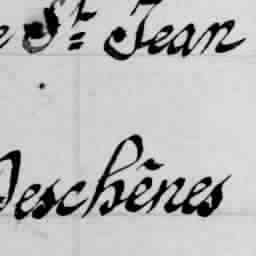 e St Jean
Deschênes